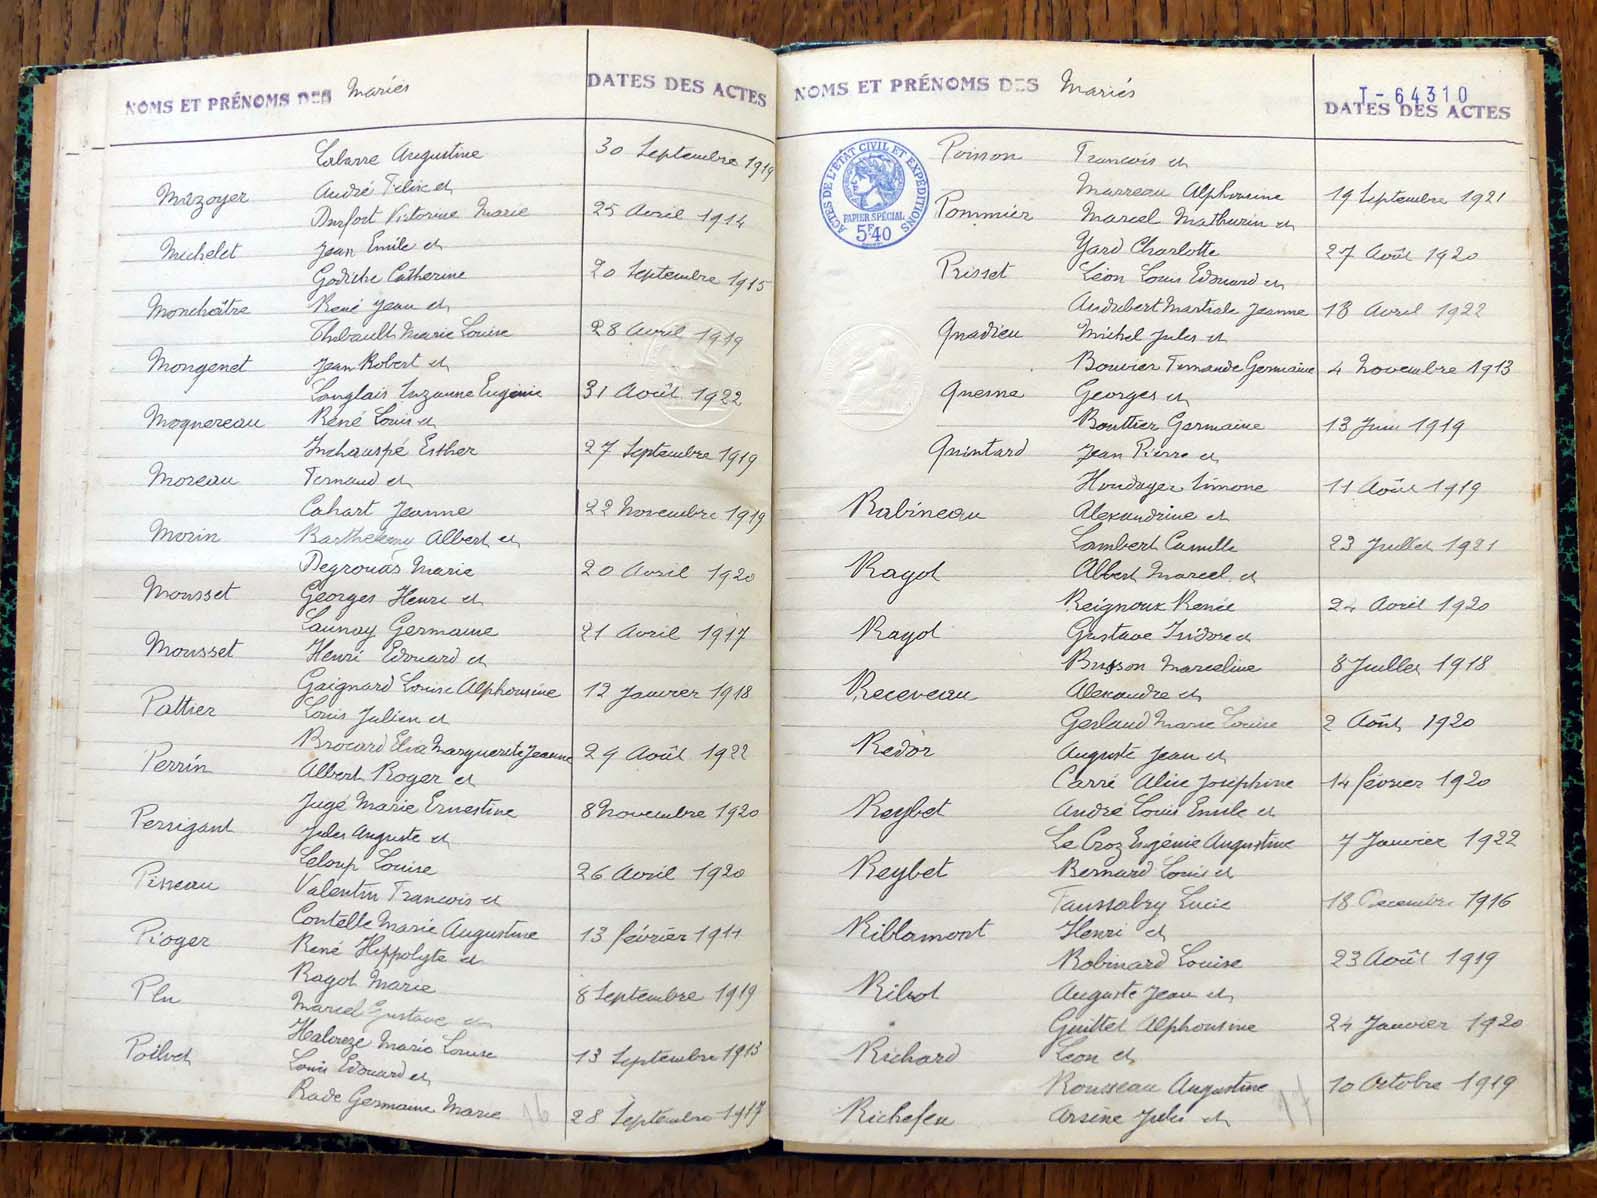 NOMS ET PRÉNOMS DES Mariés DATES DES ACTES
Labarre Augustine 30 Septembre 1919
Mézoyer André Félix et
Durfort Victorine Marie 25 Avril 1914
Michelet Jean Emile et
Godiche Catherine 20 Septembre 1915
Monchâtre René Jean et
Thibault Marie Louise 28 Avril 1919
Mongenet Jean Robert et
Langlais Suzanne Eugénie 31 Août 1922
Moquereau René Louis et
Inchauspé Esther 27 Septembre 1919
Moreau Fernand et
Cahart Jeanne 22 Novembre 1919
Morin Barthélemy Albert et
Degrouas Marie 20 Avril 1920
Mousset Georges Henri et
Launay Germaine 21 Avril 1917
Mousset Henri Edouard et
Gaignard Louise Alphonsine 12 Janvier 1918
Pattier Louis Julien et
Brocard Elia Marguerite Jeanne 29 Août 1922
Perrin Albert Roger et
Jugé Marie Ernestine 8 Novembre 1920
Perrigant Jules Auguste et
Leloup Louise 26 Avril 1920
Pineau Valentin François et
Contelle Marie Augustine 13 février 1911
Pioger René Hippolyte et
Ragot Marie 8 Septembre 1919
Plu Marcel Gustave et
Marie Louise 13 Septembre 1913
Poilvet Louis Edouard et
Rade Germaine Marie 28 Septembre 1917
NOMS ET PRÉNOMS DES Mariés T-64310
DATES DES ACTES
ACTES DE L'ÉTAT CIVIL ET EXPÉDITIONS
PAPIER SPÉCIAL
5F40
Poisson François et
Marreau Alphonsine 19 Septembre 1921
Pommier Marcel Mathurin et
Yard Charlotte 27 Août 1920
Prisset Léon Louis Edouard et
Audubert Martiale Jeanne 18 Avril 1922
Quadieu Michel Jules et
Bouvier Fernande Germaine 4 Novembre 1913
Quesne Georges et
Bouttier Germaine 13 Juin 1919
Quintard Jean Pierre et
Houdayer Simone 11 Août 1919
Rabineau Alexandrine et
Lambert Camille 23 Juillet 1921
Ragot Albert Marcel et
Reignoux Renée 24 Avril 1920
Ragot Gustave Isidore et
Busson Marceline 8 Juillet 1918
Receveau Alexandre et
Gerland Marie Louise 2 Août 1920
Redor Auguste Jean et
Carré Alice Joséphine 14 février 1920
Reybet André Louis Emile et
Le Croz Eugénie Augustine 7 Janvier 1922
Reybet Bernard Louis et
Faussabry Lucie 18 Décembre 1916
Riblamont Henri et
Robinard Louise 23 Août 1919
Ribot Auguste Jean et
Guittet Alphonsine 24 Janvier 1920
Richard Léon et
Rousseau Augustine 10 Octobre 1919
Richefeu Arsène Jules et